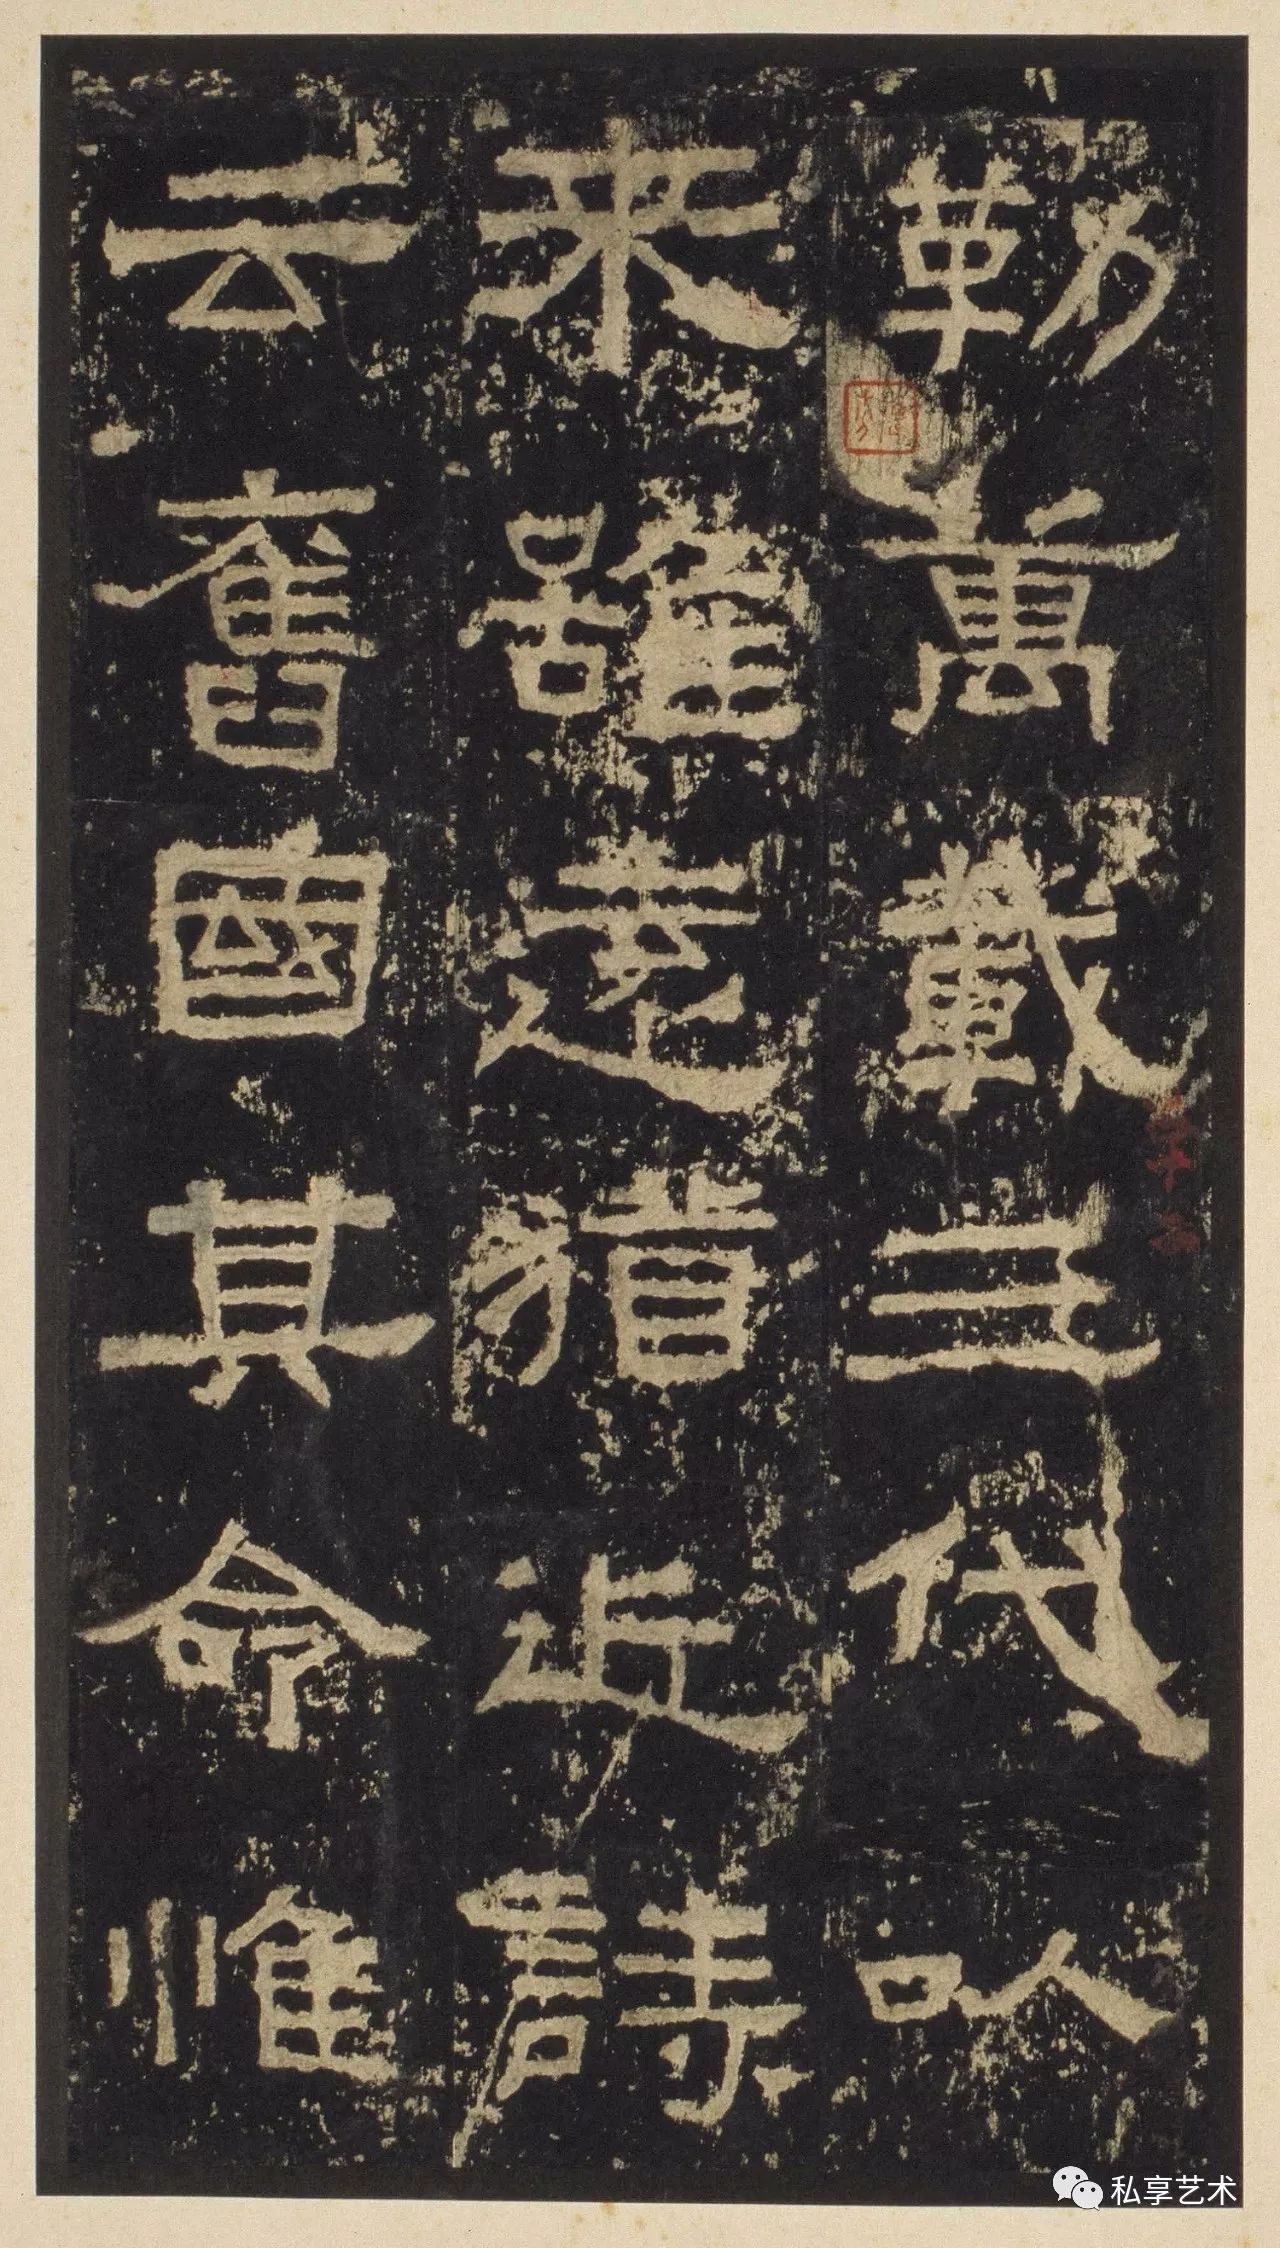 勒萬載三代以
來雖遠猶近詩
云舊國其命惟
私享艺术